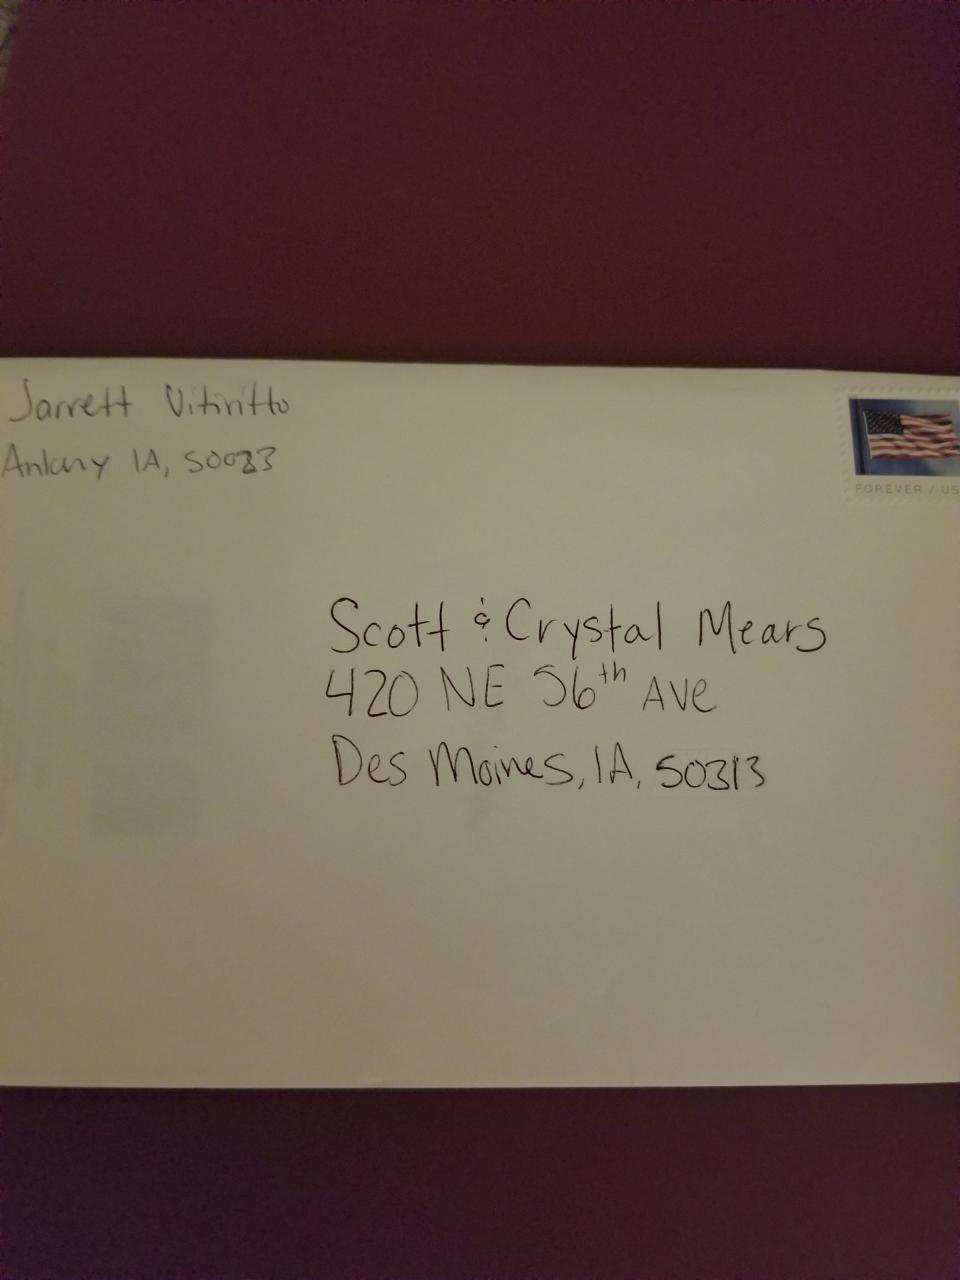 Jarrett Vitiritto
Ankeny IA, 50023
FOREVER / US
Scott & Crystal Mears
420 NE 56th Ave
Des Moines, IA, 50313